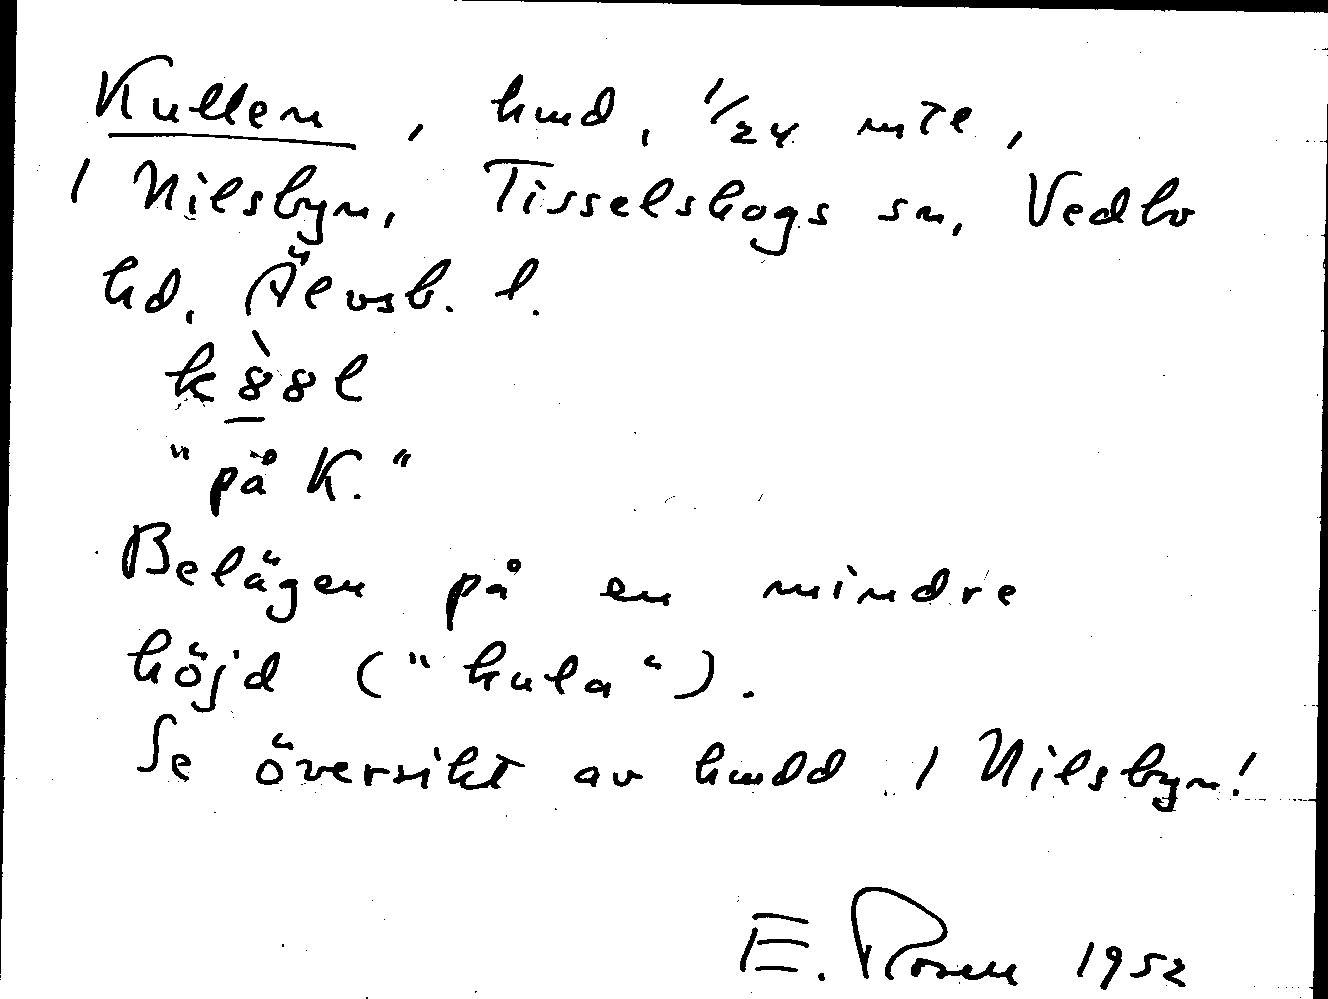 Kullen, hmd, 1/24 mtl,
1 Nilsbyn, Tisselskogs sn, Vedbo
hd, Älvsb. l.
"på K."
Belägen på en mindre
höjd ("kula").
Se översikt av hmdd 1 Nilsbyn!
E. Rosen 1952